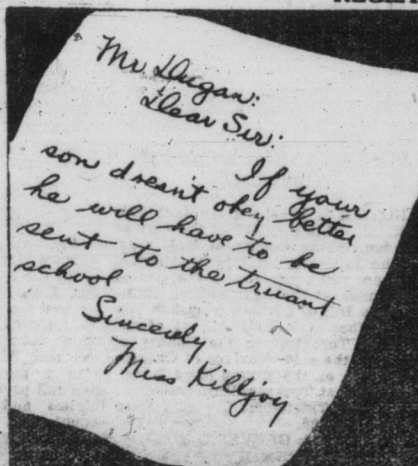 Mr Dugan:
Dear Sir:
If your
son doesn't obey better
he will have to be
sent to the truant
school
Sincerely
Miss Killjoy